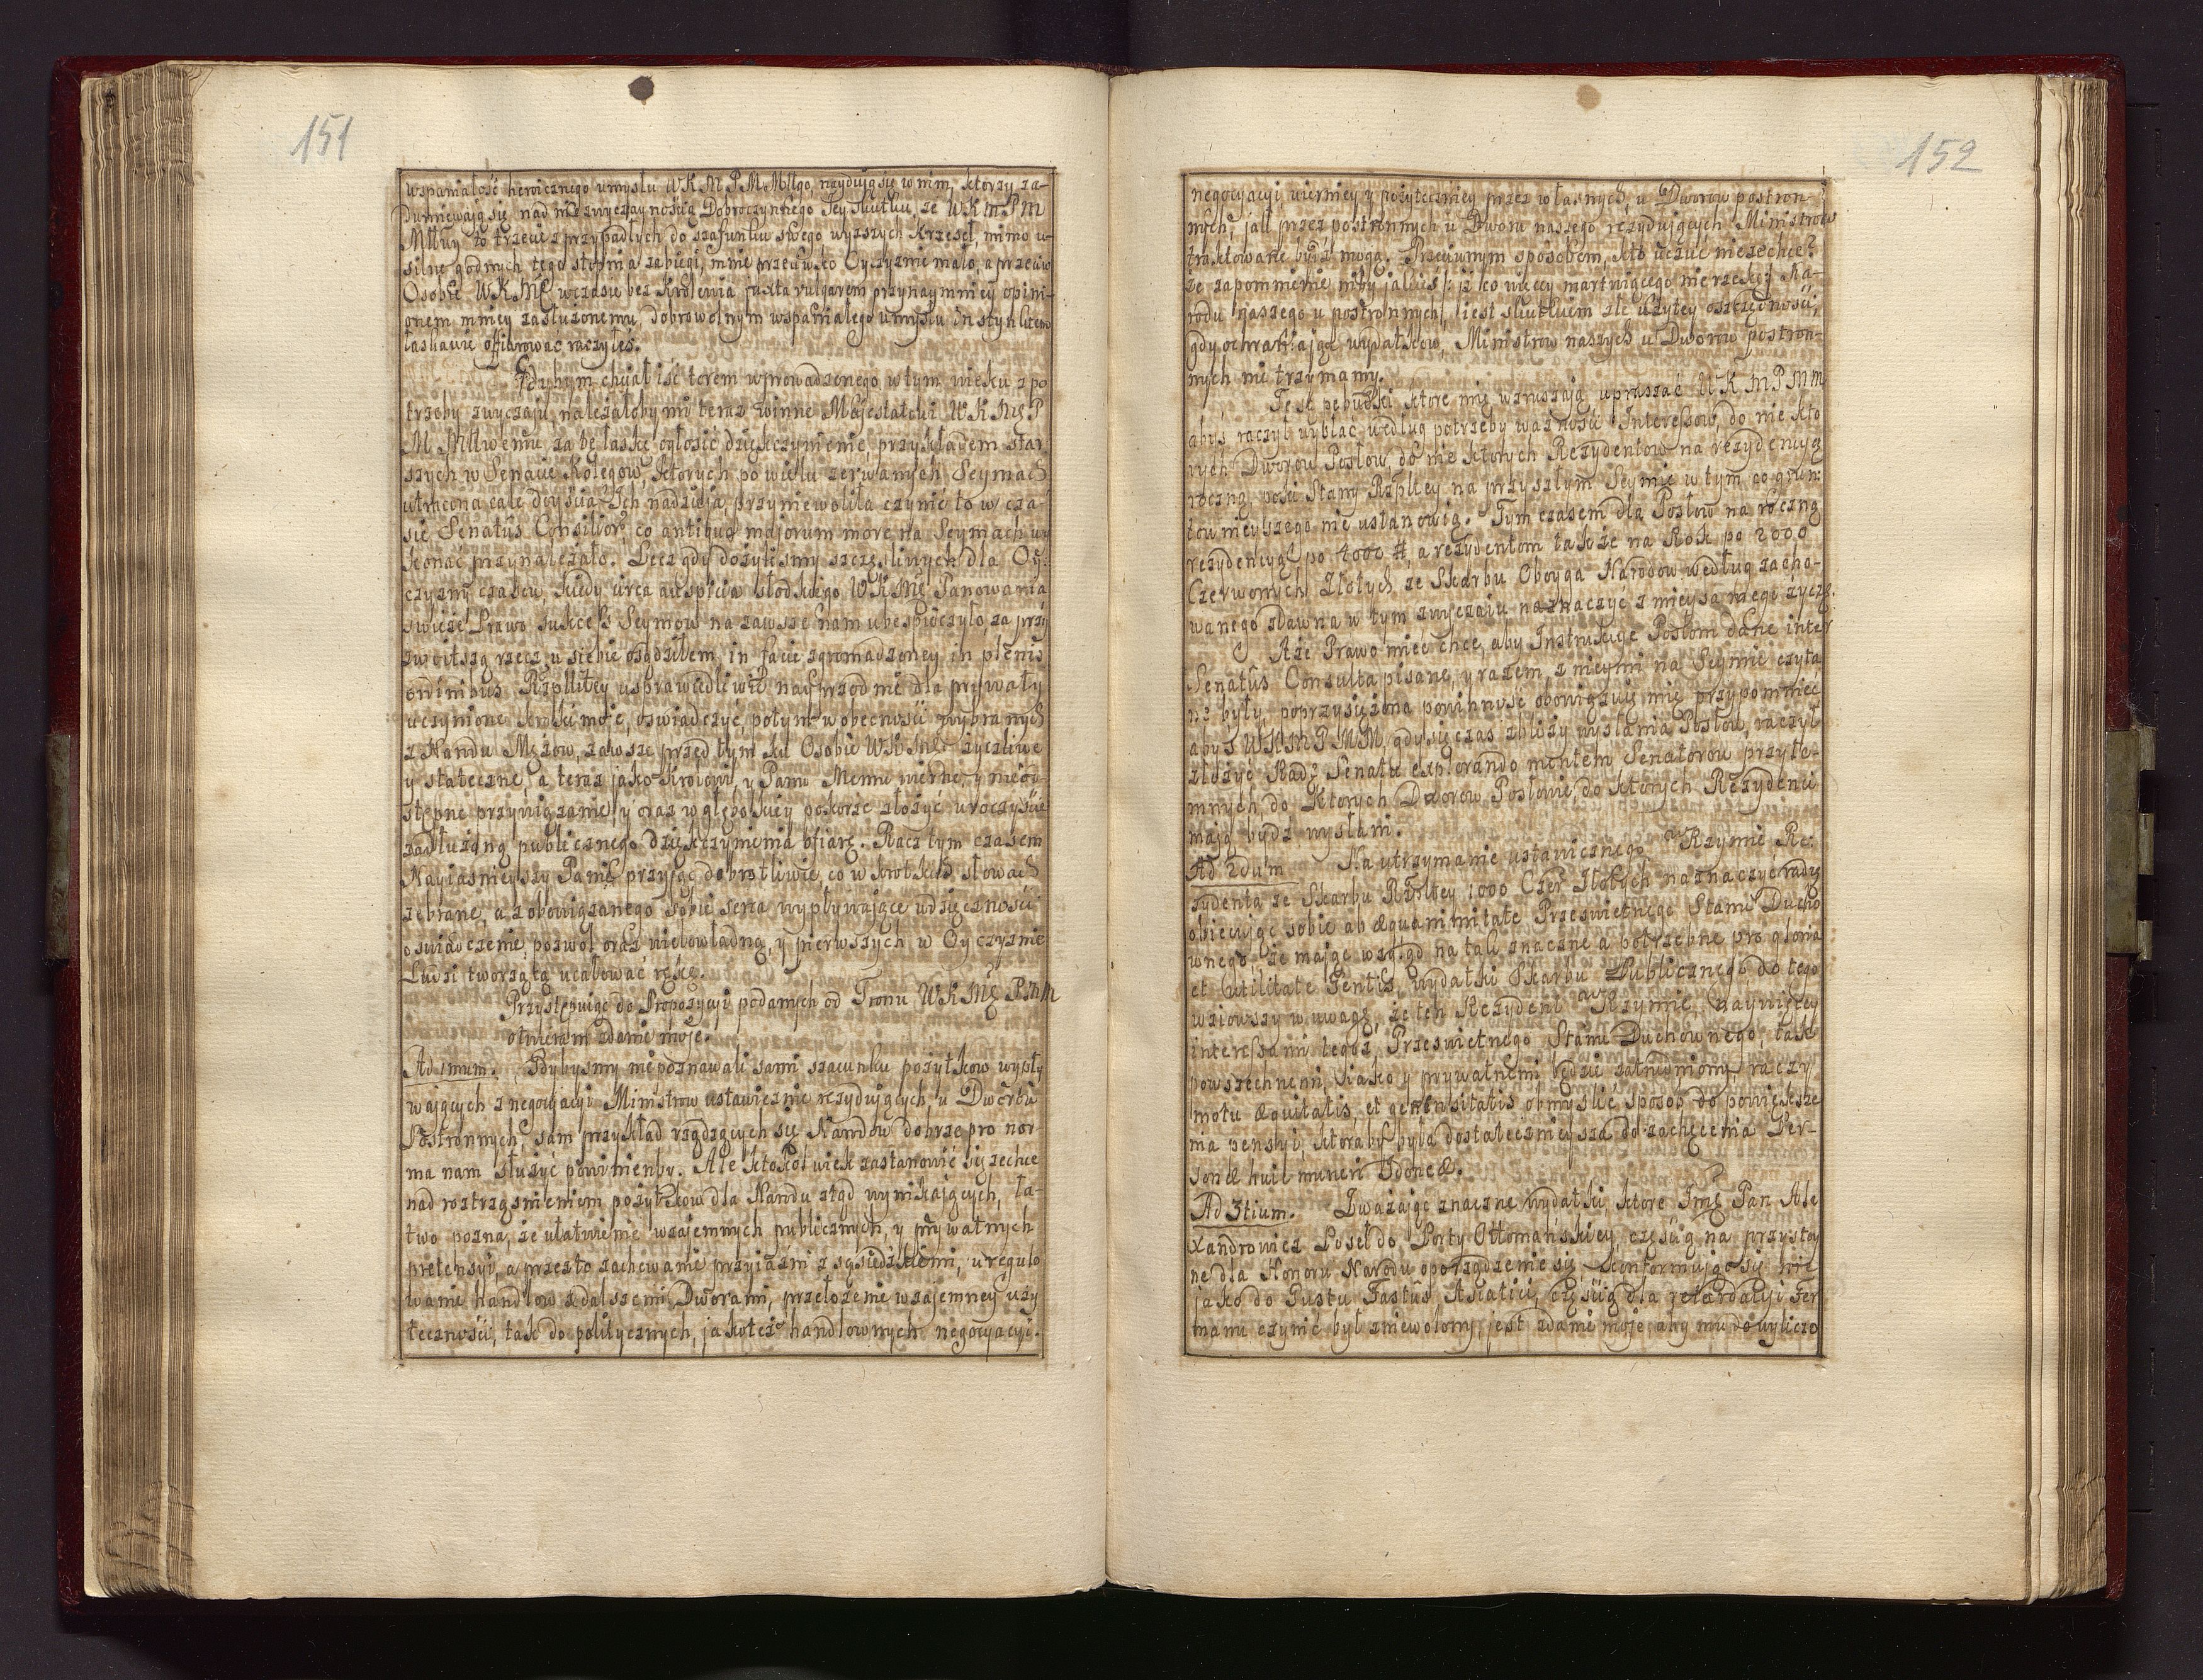 151
wspaniałość heroicznego umysłu W K M P M Młłgo, nayduią się w nim, ktorzy za-
dumiewaią się nad nie zwyczaynością Dobroczynnego Jey skutku, że W K M P M
Młłwy to trzecie z przypadłych do szafunku swego wyższych krzeseł, mimo u-
silne godnych tego stopnia zabiegi, mnie przeciwko Oyczyznie mało, a przeciw
Osobie W K Mę wczasu bez krolewia juxta vulgarem przynaymniey opini-
onem mniey zasłużonemu, dobrowolnym wspaniałego umysłu instynktem
łaskawie offiarować raczyłeś.
Gdybym chciał iść torem wprowadzonego w tym wieku z po
trzeby zwyczaju, należałoby mi teraz winne Majestatowi W K Mę P
M Młłwemu za tę łaskę ogłosić dziękczynienie, przykładem star
szych w Senacie Kolegow, ktorych po wielu zerwanych Seymach
utracona cale doyścia Ich nadzieja, przyniewoliła czynić to w cza-
sie Senatûs Consilior, co antiquo majorum more na Seymach wy
konać przynależało. Lecz gdy dożyliśmy szczęśliwych dla Oy-
czyzny czasow, kiedy circa auspicia słodkiego W K Mę Panowania
świeże Prawo sukcess Seymow na zawsze nam ubespieczyło, za przy
zwoitszą rzecz u siebie osądziłem, in facie zgromadzoney in plenis
ordinibus Rzplltey usprawiedliwić nayprzod nie dla prywaty
uczynione kroki moje, oświadczyć potym w obecności wybranych
z Narodu Mężow, zawsze przed tym ku Osobie W K Mę życzliwe
y stateczne, a teraz jako Krolowi, y Panu Memu wierne, y nieod-
stępne przywiązanie, y oraz w głębokiey pokorze złożyć uroczyście
zadłużoną publicznego dziękczynienia ofiarę. Racz tym czasem
Nayiaśnieyszy Panie przyjąć dobrotliwie, co w krotkich słowach
zebrane, a z obowiązanego sobie serca wypływające wdzięczności
oświadczenie, pozwol oraz wielowładną, y pierwszych w Oyczyznie
Ludzi tworzącą ucałować rękę.
Przystępuiąc do Propozycyi podanych od Tronu W K Mę P M M
otwieram zdanie moje.
Ad 1mum. Gdybyśmy nie poznawali sami szacunku pożytkow wypły
wających z negocyacyi Ministrow ustawicznie rezydujących u Dworow
Postronnych, sam przykład rządzących się Narodow dobrze pro nor-
ma nam służyć powinienby. Ale ktokolwiek zastanowić się zechce
nad roztrząśnieniem pożytkow dla Narodu ztąd wynikających, ła-
two pozna, że ułatwienie wzajemnych publicznych, y prywatnych
pretensyi, a przezto zachowanie przyiaźni z sąsiedzkiemi, uregulo
wanie handlow z dalszemi Dworami, przełożenie wzajemney uży
teczności, tak do politycznych, jakoteż handlownych negocyacyi.
152
negocyacyi, wierniey y pożyteczniey przez własnych u Dworow postron-
nych, jak przez postronnych u Dworu naszego rezydujących Ministrow
traktowane bydź mogą. Przeciwnym sposobem, kto uczuć niezechce?
że zapomnienie niby jakieś /: iż co więcey martwiącego nie rzekę :/ Na-
rodu naszego u postronnych, iest skutkiem źle użytey oszczędności,
gdy ochraniając wydatkow, Ministrow naszych u Dworow postron-
nych nie trzymamy.
Te są pobudki, ktore mię wzruszają upraszać W K M P M M
abyś raczył wybrać według potrzeby ważności Interessow, do nie kto
rych Dworow Posłow, do nie ktorych Rezydentow na rezydencyą
roczną, poki Stany Rzpltey na przyszłym Seymie w tym co grun-
townieyszego nie ustanowią. Tym czasem dla Posłow na roczną
rezydencyą po 4000 #, a rezydentom także na Rok po 2000
Czerwonych Złotych ze Skarbu Oboyga Narodow według zacho-
wanego zdawna w tym zwyczaju naznaczyć z mieysca mego życzę.
A że Prawo mieć chce, aby Instrukcye Posłom dane inter
Senatûs Consulta pisane, y razem z niemi na Seymie czyta
ne były, poprzysiężona powinność obowiązuię mię przypomnieć
abyś W K M P M M, gdy się czas zbliży wysłania Posłow, raczył
złożyć Radę Senatu explorando mentem Senatorow przyto-
mnych do Ktorych Dworow Posłowie, do ktorych Rezydenci
mają bydź wysłani.
Ad 2dum Na utrzymanie ustawicznego w Rzymie Re-
zydenta ze Skarbu Rzpltey 1000 Czer Złotych naznaczyć radzę
obiecując sobie ab aequanimitate Prześwietnego Stanu Ducho
wnego, że mając wzgląd na tak znaczne a potrzebne pro gloria
et utilitate Gentis, wydatki Skarbu Publicznego do tego
wziowszy w uwagę, że ten Rezydent w Rzymie, naywięcey
interessami tegoż Prześwietnego Stanu Duchownego, tak
powszechnemi, iako y prywatnemi będzie zatrudniony, raczy
motu aequitatis, et generositatis obmyślić sposob do powiększe
nia pensyi, ktoraby była dostatecznieysza do zachęcenia Per-
sonae huic muneri Idoneae.
Ad 3tium. Uważając znaczne wydatki, ktore Jmę Pan Ale
xandrowicz Poseł do Porty Ottomańskiey, częścią na przystoy
ne dla Honoru Narodu oporządzenie się, konformując się nie
jako do Gustu Fastûs Asiatici, częścią dla retardacyi Fer
manu czynić był zniewolony, jest zdanie moje, aby mu do wyliczo